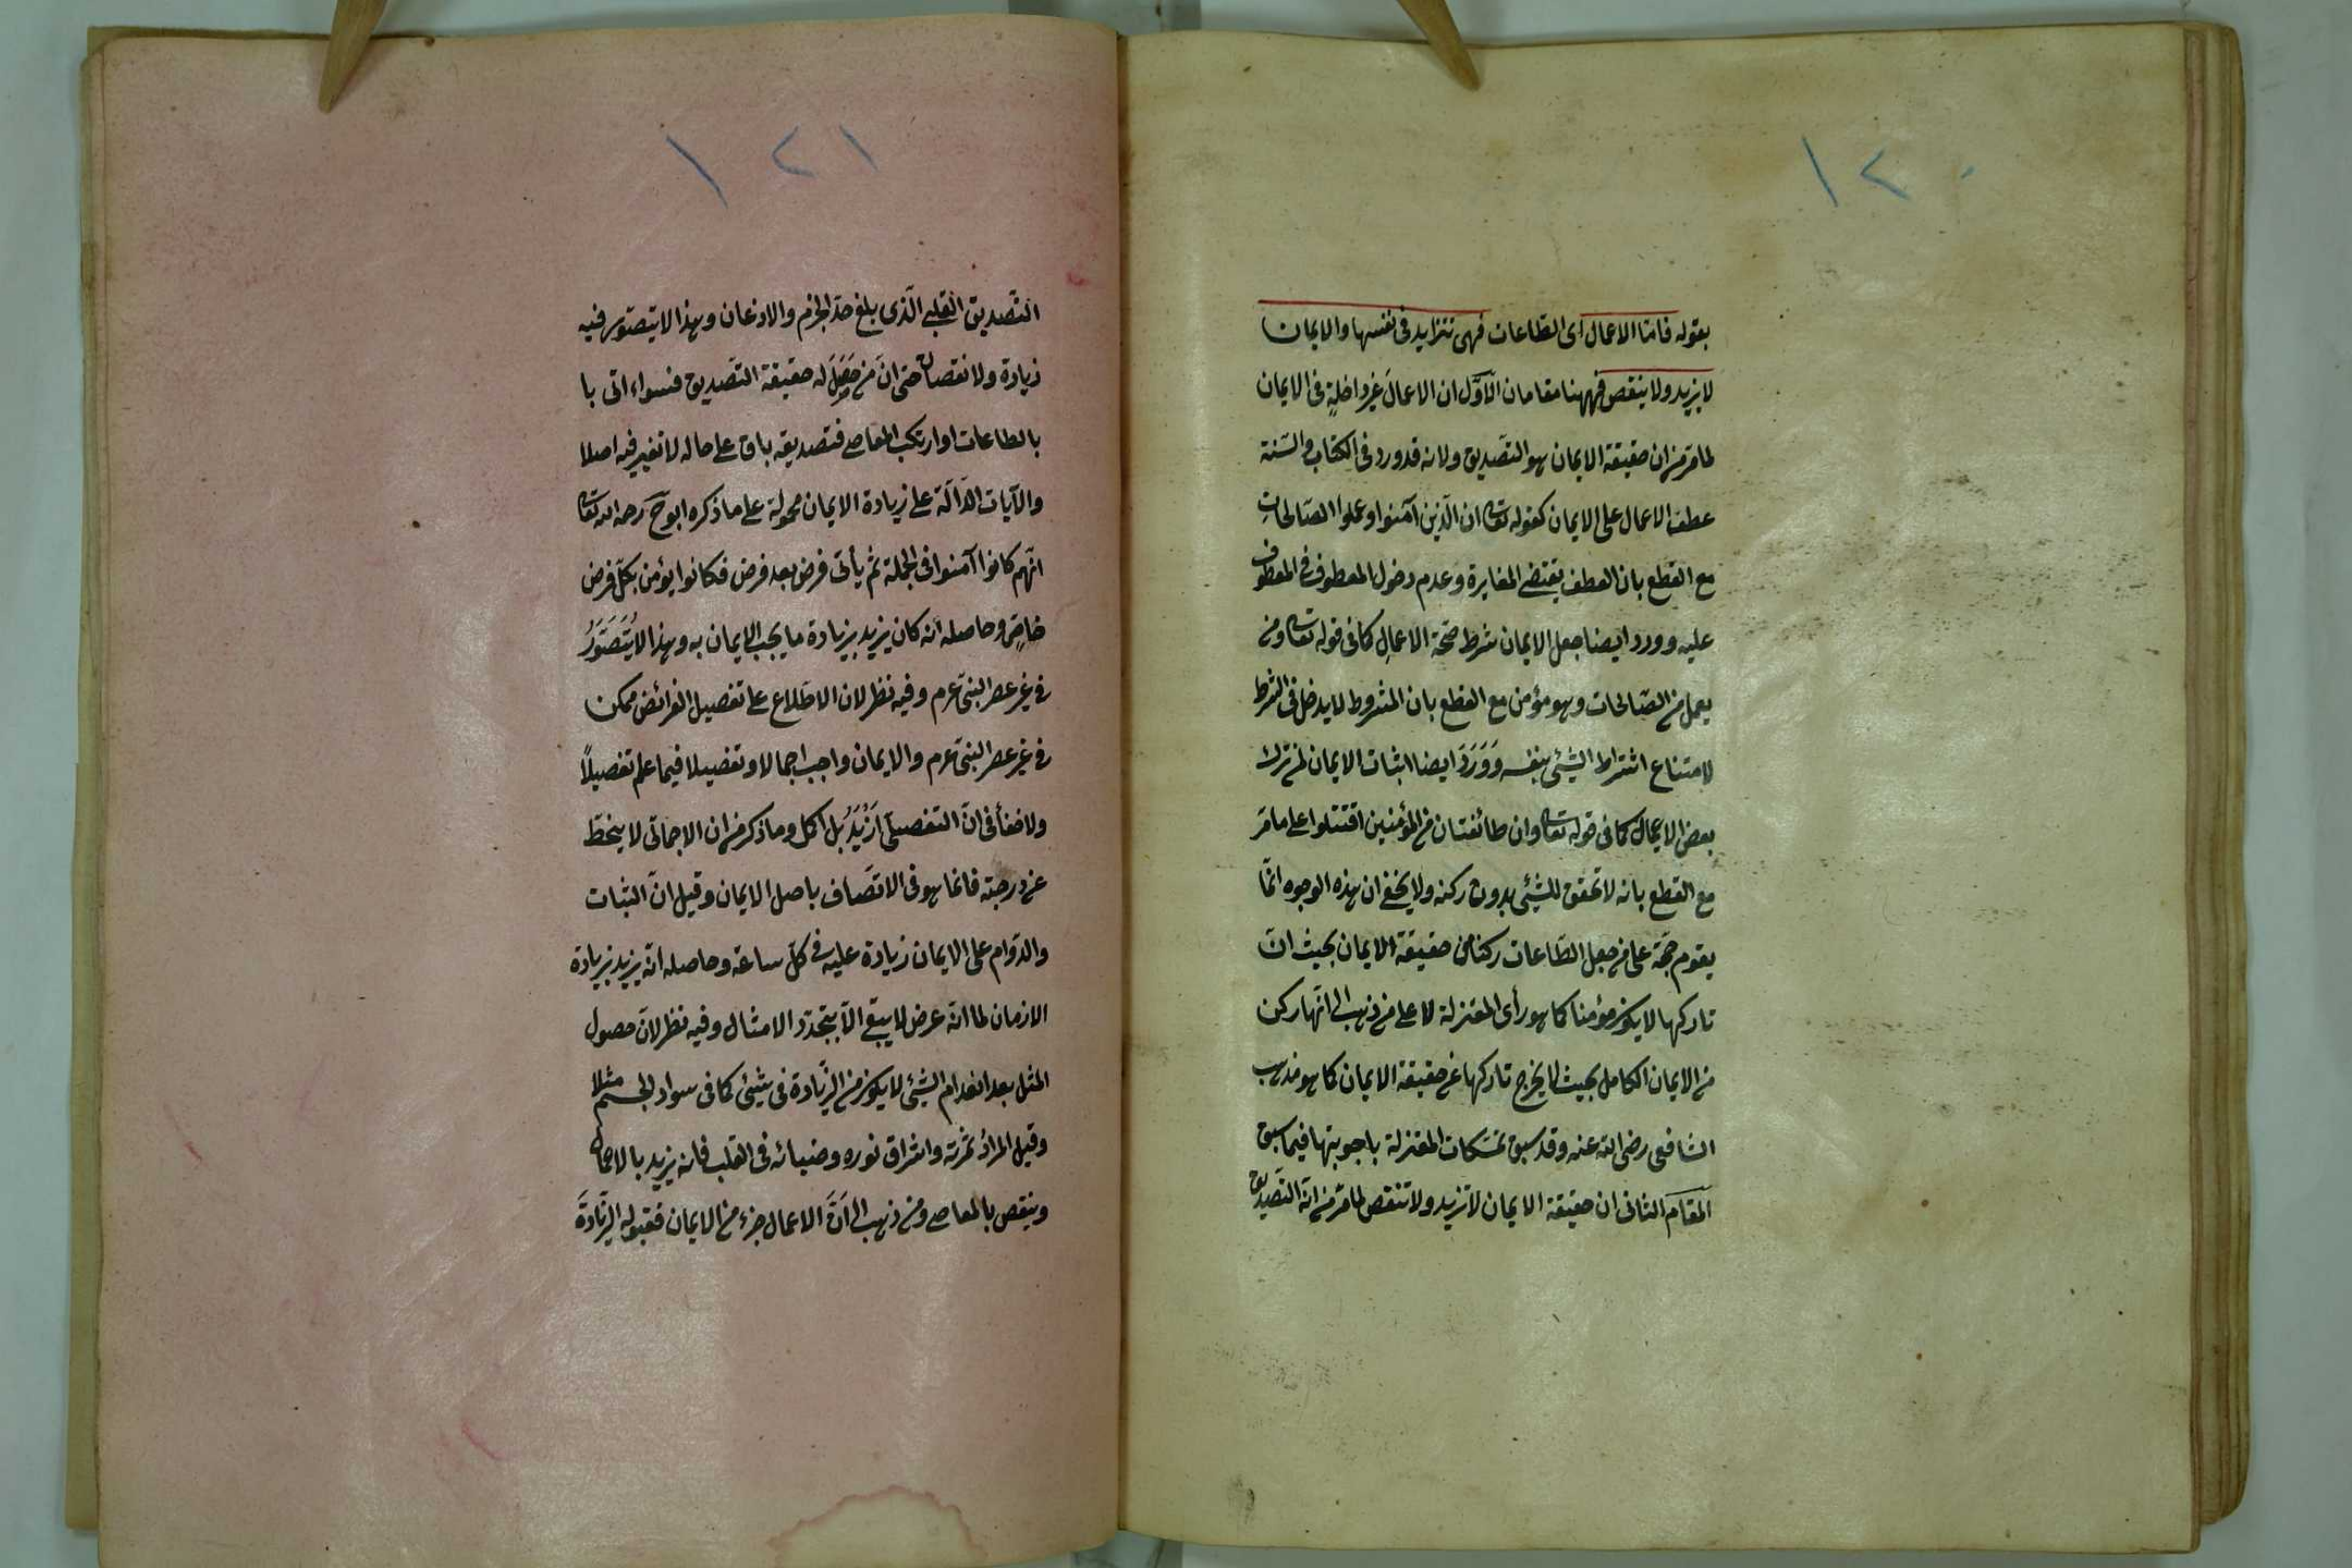 ١٢٠
بقوله فامّا الاعمال اى الطّاعات فهى تتزايد فى نفسها والايمان
لا يزيد ولا ينقص فههنا مقامان الاوّل ان الاعمال غير داخلةٍ فى الايمان
لما مرّ من ان حقيقة الايمان هو التّصديق ولانه قد ورد فى الكتاب والسّنة
عطف الاعمال على الايمان كقوله تعالى ان الّذين آمنوا وعملوا الصّالحاتِ
مع القطع بان العطف يقتضى المغايرة وعدم دخول المعطوف فى المعطوف
عليه وورد ايضا جعل الايمان شرط صحّة الاعمالِ كما فى قوله تعالى ومن
يعمل من الصّالحات وهو مؤمن مع القطع بان المشروط لا يدخل فى الشرط
لامتناع اشتراط الشيئى بنفسه وَوَرَدَ ايضا اثبات الايمان لمن ترك
بعض الاعمال كما فى قوله تعالى وان طائفتان من المؤمنين اقتتلوا على ما مرّ
مع القطع بانه لا تحقق للشيئى بدون ركنه ولا يخفى ان هذه الوجوه انّما
يقوم حجّة على من جعل الطّاعات ركنا من حقيقة الايمان بحيث انّ
تاركها لا يكون مؤمنا كما هو رأى المعتزلة لا على من ذهب الى انّها ركن
من الايمان الكامل بحيث لا يخرج تاركها عن حقيقة الايمان كما هو مذهب
الشافعى رضى الله عنه وقد سبق تمسّكات المعتزلة باجوبتها فيما سبق
المقام الثانى ان حقيقة الايمان لا تزيد ولا تنقص لما مرّ من انّه التّصديق
١٢١
التّصديق القلبى الّذى بلغ حدّ الجزم والاذعان وهذا لا يتصوّر فيه
زيادة ولا نقصان حتى انّ من حَصَلَ له حقيقة التّصديق فسواء اتى با
بالطاعات او ارتكب المعاصى فتصديقه باق على حاله لا تغير فيه اصلا
والآيات الدّالّة على زيادة الايمان محمولة على ما ذكره ابو ح رحمه الله تعالى
انّهم كانوا آمنوا فى الجملة ثم يأتى فرض بعد فرض فكانوا يؤمن بكلّ فرض
خاصٍ وحاصله انّه كان يزيد بزيادة ما يجب الايمان به وهذا لا يُتَصَوَّرُ
فى غير عصر النبىّ عم وفيه نظر لان الاطّلاع على تفصيل الفرائض ممكن
فى غير عصر النبىّ عم والايمان واجب اجمالا وتفصيلا فيما علم تفصيلاً
ولا خفأ فى انّ التفصيلىّ اَزْيَدُ بل اكمل وما ذكر من ان الاجمالى لا ينحطّ
عن درجته فانما هو فى الاتّصاف باصل الايمان وقيل انّ الثبات
والدّوام على الايمان زيادة عليه فى كلّ ساعة وحاصله انّه يزيد بزيادة
الازمان لما انّه عرض لا يبقى الّا بتجدّد الامثال وفيه نظر لانّ حصول
المثل بعد انعدام الشيئى لا يكون من الزّيادة فى شيئى كما فى سواد الجسم مثلا
وقيل المرادُ ثمرته واشراق نوره وضيائه فى القلب فانه يزيد بالاعمال
وينقص بالمعاصى ومن ذهب الى اَنَّ الاعمال جزء من الايمان فقبوله الزّيادةَ